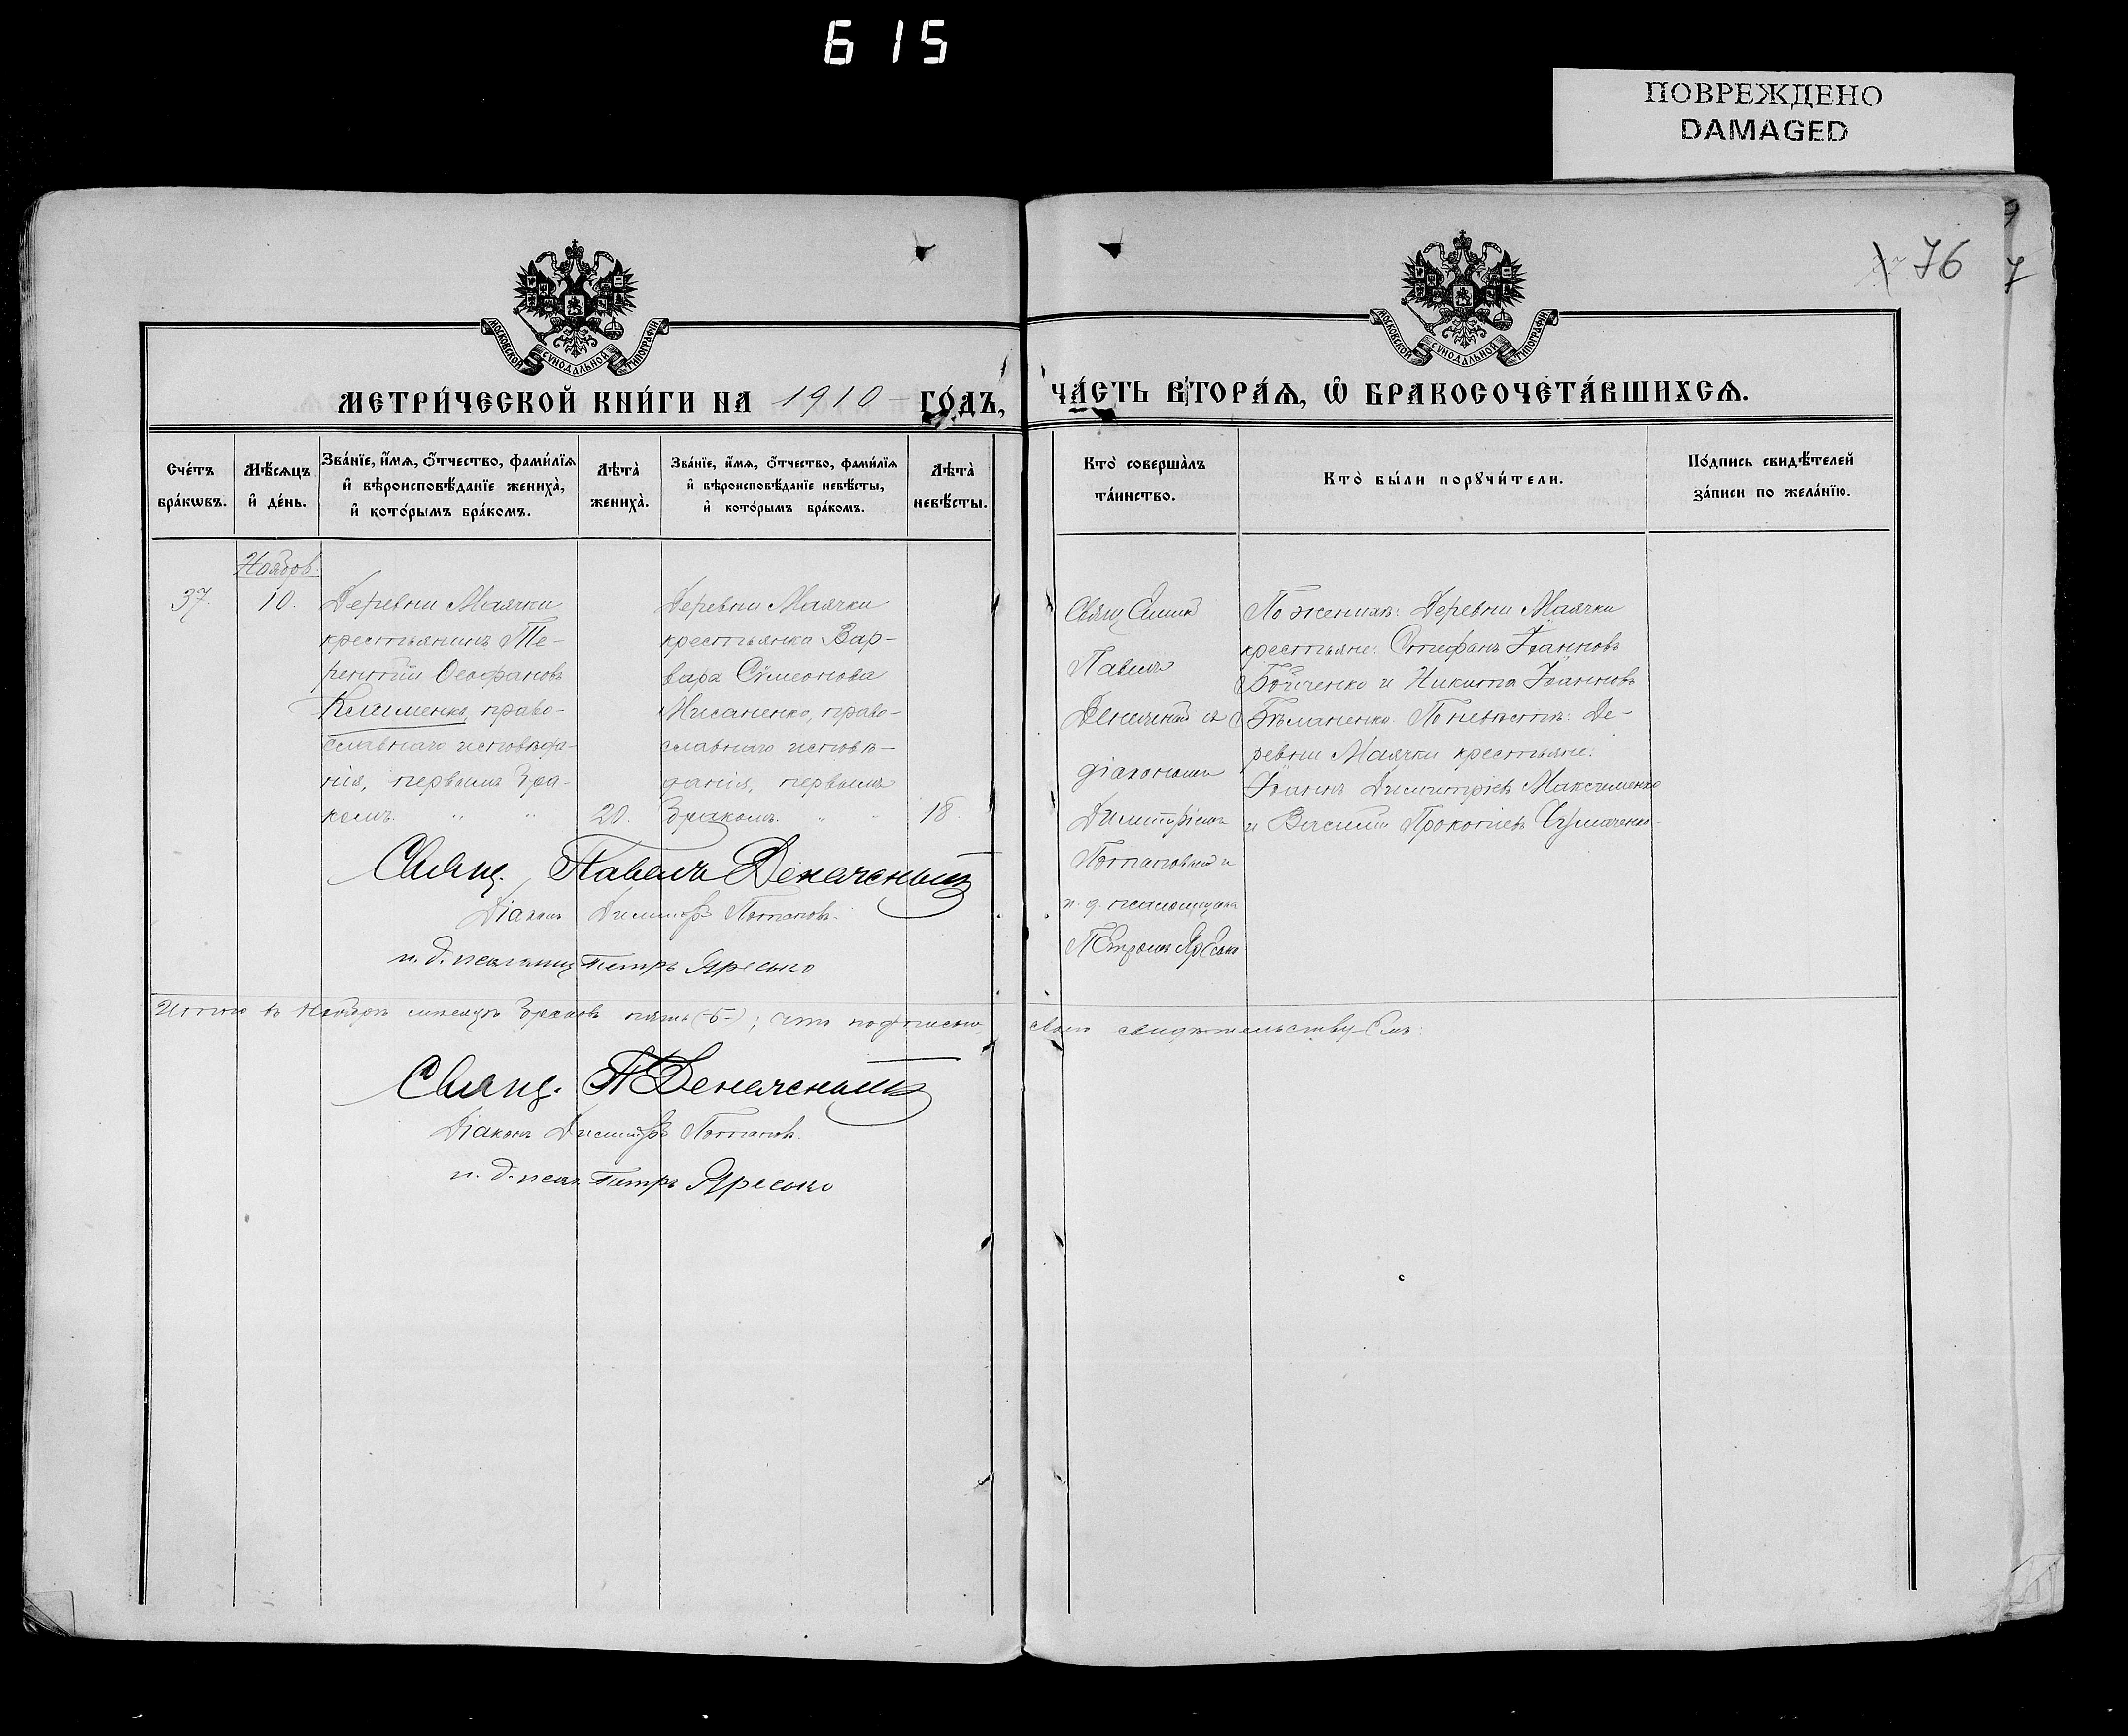 615
ПОВРЕЖДЕНО
DAMAGED
76
МОСКОВСКОЙ СѴНОДАЛЬНОЙ ТИПОГРАФІИ
МОСКОВСКОЙ СѴНОДАЛЬНОЙ ТИПОГРАФІИ
МЕТРИ́ЧЕСКОЙ КНИ́ГИ НА 1910 ГО́ДЪ,
ЧА́СТЬ ВТОРА́Ѧ, Ѡ҆ БРАКОСОЧЕТА́ВШИХСѦ.
Сче́тъ бра́кѡвъ.
Мѣ́сѧцъ и҆ де́нь.
Зва́нїе, и҆́мѧ, ѻ҆́тчество, фами́лїѧ и҆ вѣроисповѣ́данїе жениха̀, и҆ кото́рымъ бра́комъ.
Лѣта̀ жениха̀.
Зва́нїе, и҆́мѧ, ѻ҆́тчество, фами́лїѧ и҆ вѣроисповѣ́данїе невѣ́сты, и҆ кото́рымъ бра́комъ.
Лѣта̀ невѣ́сты.
Кто̀ соверша́лъ та́инство.
Кто̀ бы́ли порꙋчи́тели.
По́дпись свидѣ́телей за́писи по жела́нїю.
Ноябрь
37.
10.
Деревни Маячки
крестьянинъ Те-
рентій Ѳеофановъ
Клименко, право-
славнаго исповѣда-
нія, первымъ бра-
комъ. " "
20.
Деревни Маячки
крестьянка Вар-
вара Сѵмеонова
Мисаненко, право-
славнаго исповѣ-
данія, первымъ
бракомъ. " "
18.
Павелъ
съ
діакономъ
Димитріемъ
Потаповымъ и
и. д. псаломщика
Петромъ Яресько
По женихѣ: Деревни Маячки
крестьяне: Стефанъ Іоанновъ
Бойченко и Никита Іоанновъ
По невѣстѣ: Де-
ревни Маячки крестьяне:
Іоаннъ Димитріевъ Максименко
и Василій Прокопіевъ
Свящ. Павелъ
Діаконъ Димитрій Потаповъ.
и. д. псаломщ Петръ Яресько
Итого въ Ноябрѣ мѣсяцѣ браковъ пять (-5-); что подписью
своею свидѣтельствуемъ:
Свящ. П
Діаконъ Димитрій Потаповъ.
и. д. псал. Петръ Яресько